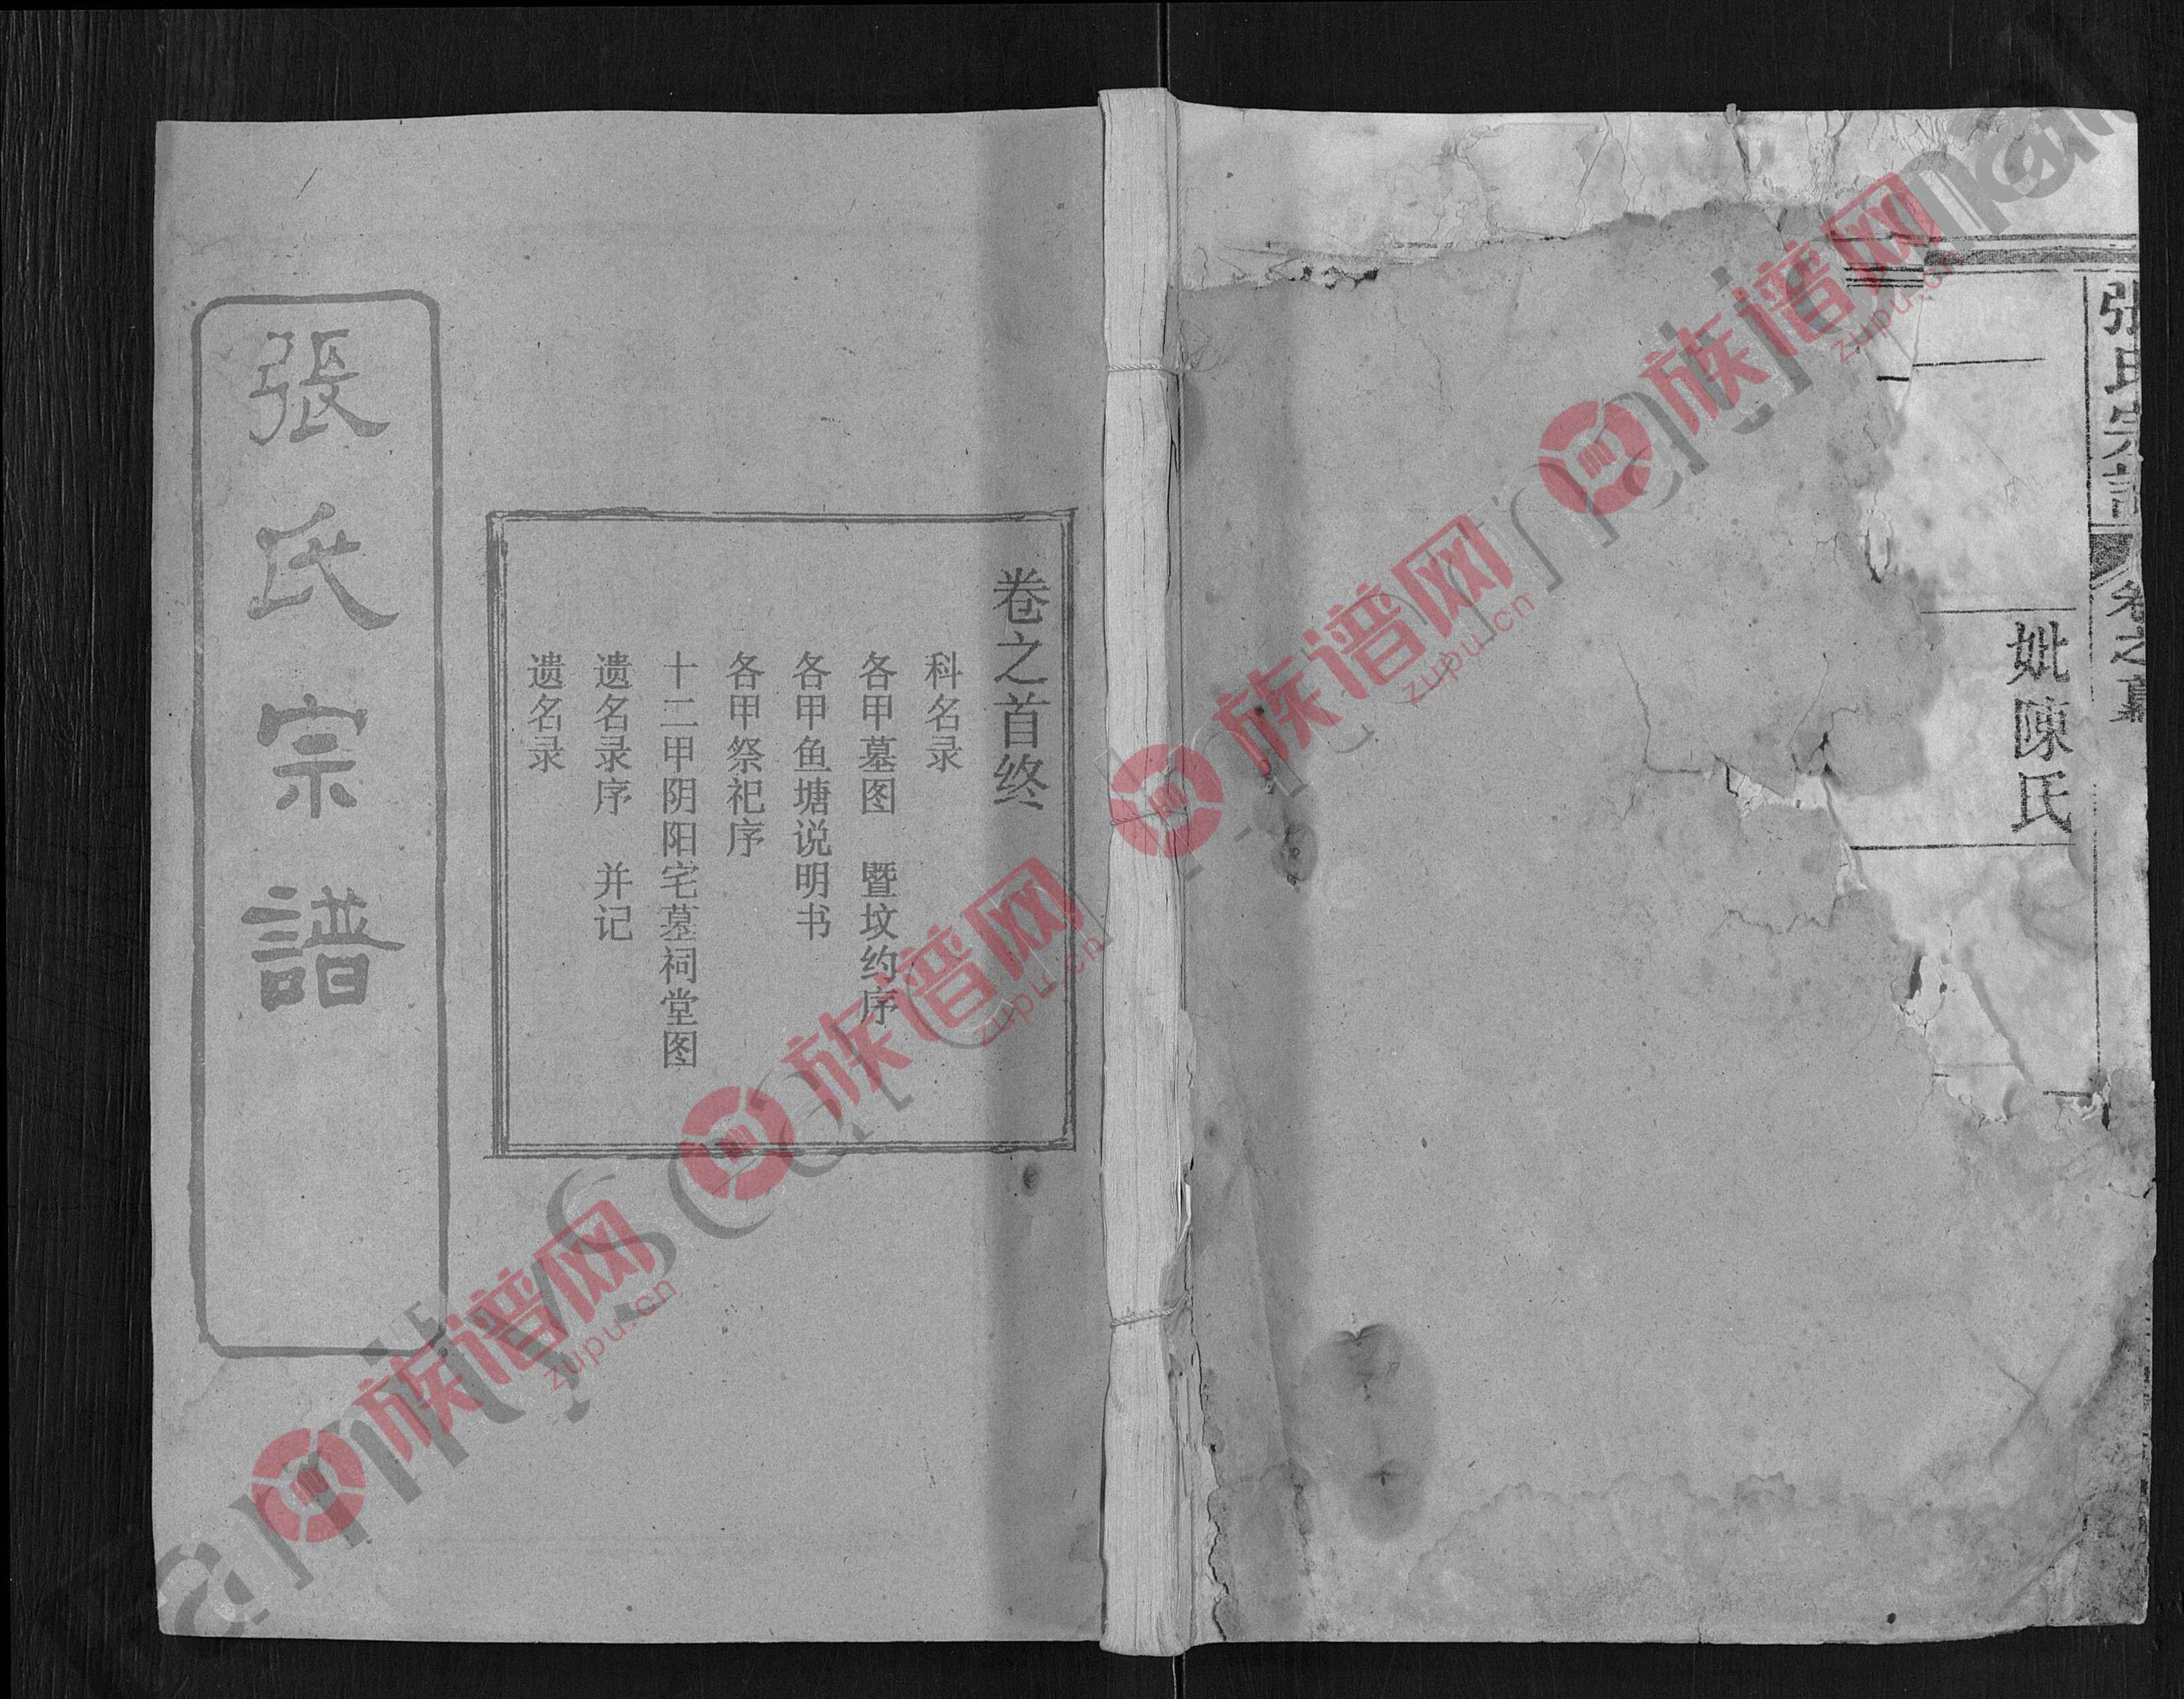 張氏宗譜
卷之首终
科名录
各甲墓图　暨坟约序
各甲鱼塘说明书
各甲祭祀序
十二甲阴阳宅墓祠堂图
遗名录序　并记
遗名录
张氏宗
卷之
妣陳氏
族谱网
zupu.cn
族谱网
zupu.cn
族谱网
zupu.cn
族谱网
zupu.cn